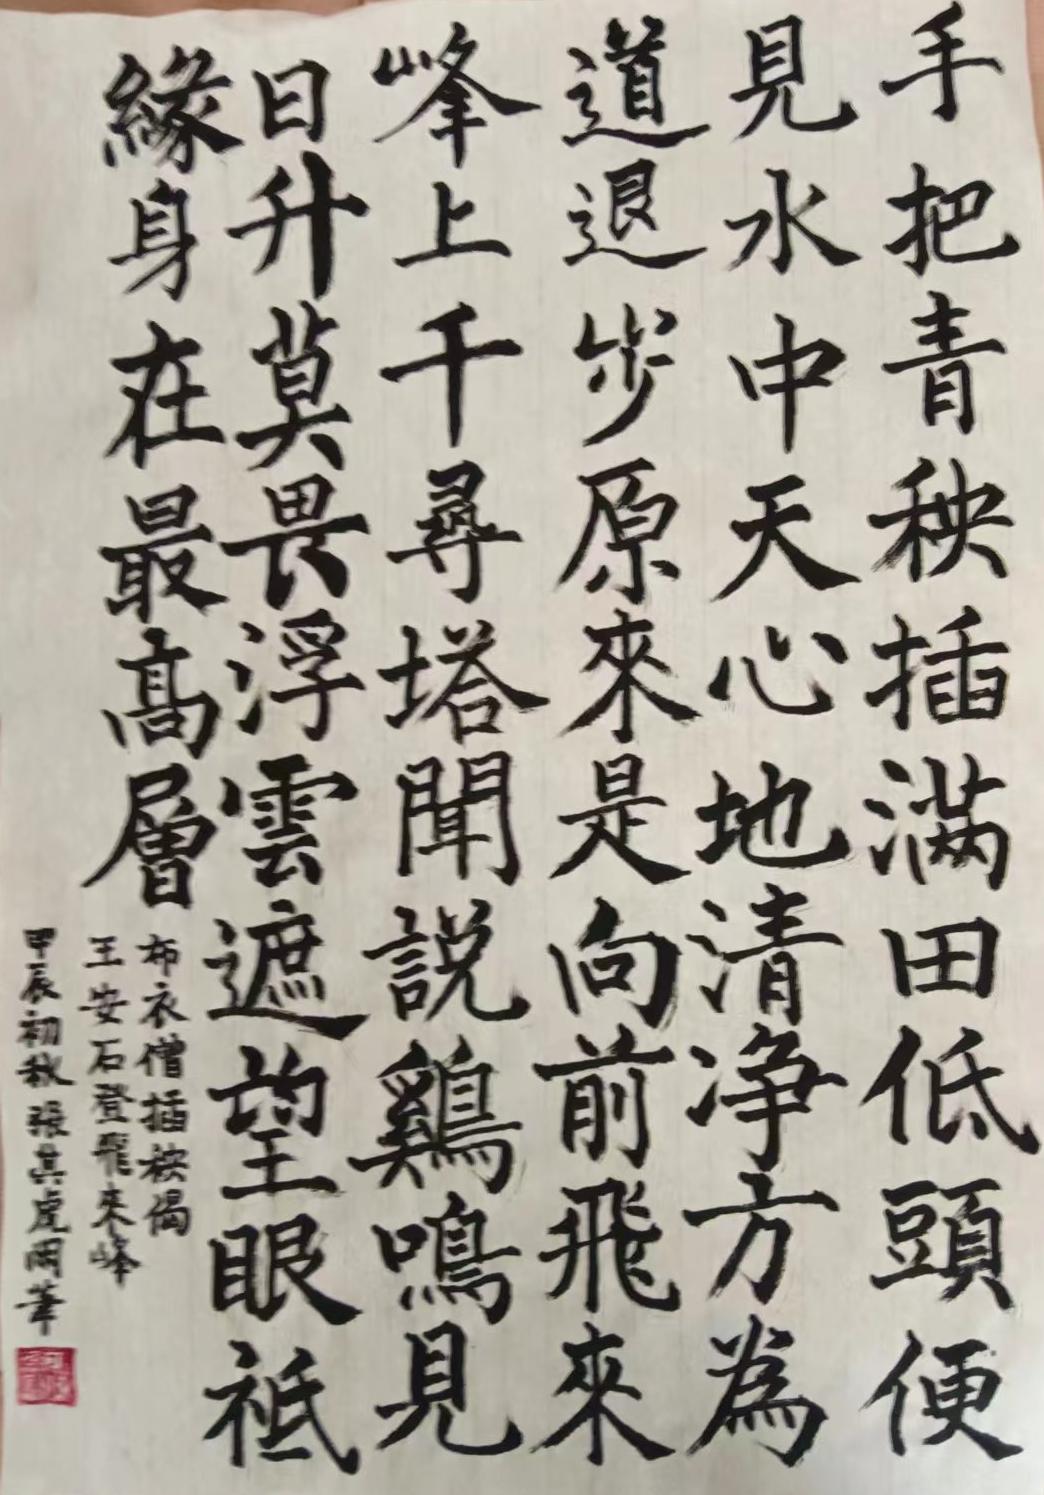 手把青秧插滿田低頭便
見水中天心地清净方為
道退步原來是向前飛來
峰上千尋塔聞説鷄鳴見
日升莫畏浮雲遮望眼祗
緣身在最高層
布衣僧插秧偈
王安石登飛來峰
甲辰初秋張其虎閑筆